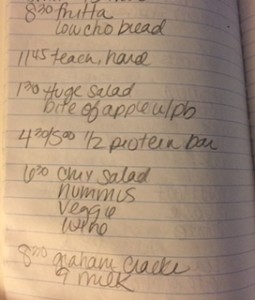 8³⁰ fritta
low cho bread
11⁴⁵ teach, hard
1³⁰ Huge salad
bite of apple w/pb
4³⁰/5⁰⁰ 1/2 protein bar
6³⁰ chix salad
hummus
veggie
wine
8³⁰ graham cracke
milk